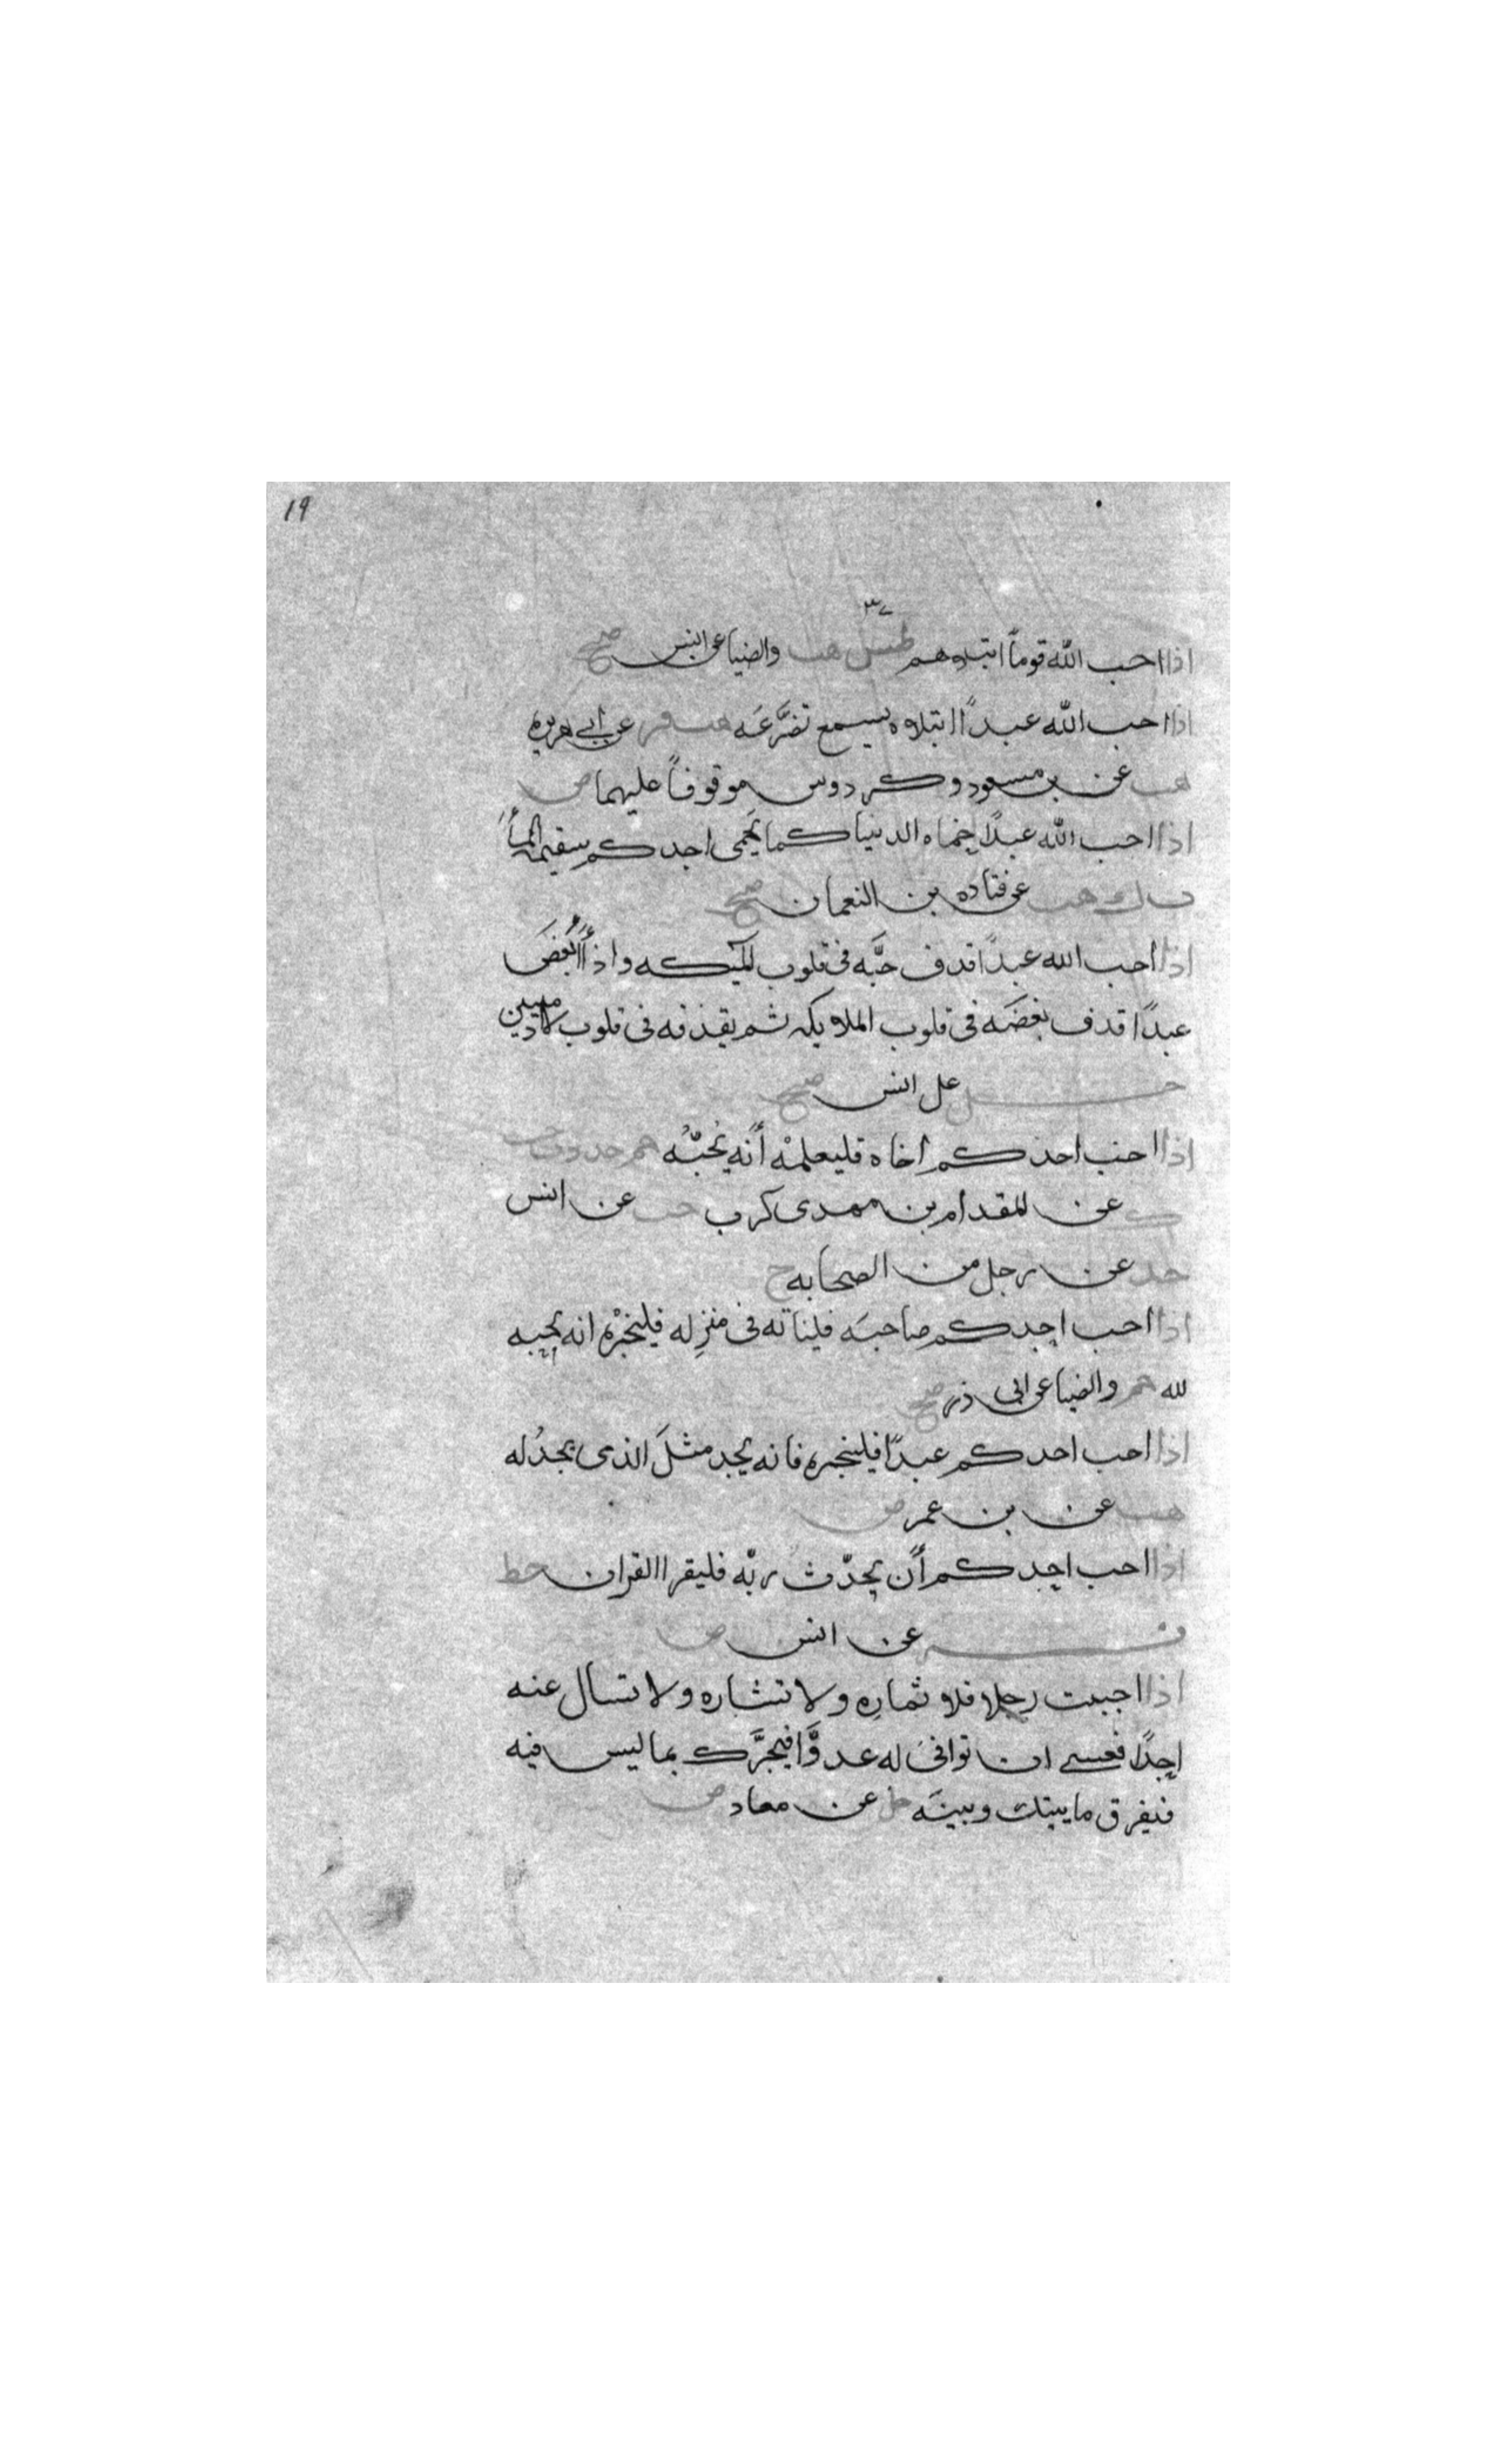 ١٩
٣٧
اذا احب الله قوماً ابتلاهم طس هب والضيا عن انس صح
اذا احب الله عبداً ابتلاه ليسمع تضرَّعَه هب فر عن ابي هريره
هب عن بن مسعود وكردوس موقوفاً عليهما ض
اذا احب الله عبدًا حماه الدنيا كما يَحمى احدكم سقيمه المأَ
ت ك هب عن قتاده بن النعمان صح
اذا احب الله عبدًا قدف حبَّه فى قلوب المليكه واذا أَبْغضَ
عبدًا قدف بغضَه فى قلوب الملايكه ثم يقذفه فى قلوب الادميين
حل عن انس صح
اذا احب احدكم اخاه فليعلمْه أنه يُحبّه حم خد د ت حب
ك عن المقدام بن معدى كرب حب عن انس
خد عن رجل من الصحابه ح
اذا احب احدكم صاحبَه فلياته فى منزِله فليخبْره انه يحبه
لله حم والضيا عن ابى ذر صح
اذا احب احدكم عبدًا فليخبره فانه يجد مثلَ الذى يجدُ له
هب عن بن عمر ض
اذا احب احدكم أن يحدّث ربّه فليقرا القران خط
فر عن انس ض
اذا احببت رجلا فلا تمارِه ولا تشاره ولا تسال عنه
احدًا فعسى ان توافىَ له عدوًّا فيخبرَك بما ليس فيه
فيفرق ما بينك وبينَه حل عن معاد ض